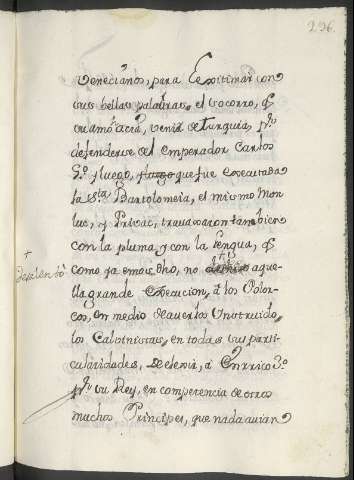 296.
venecianos, para lexitimar con
sus bellas palabras, el socorro, q̃
su amo hacia, venir de turquia, pª
defenderse del emperador Carlos
5º y luego, que fue executada
la Sta Bartolomeia, el mismo Mon
luc, y Privac, travaxaron tambien
con la pluma y con la lengua, q̃
como ya emos dho, no aque-
lla grande execucion, a los Polon-
cos, en medio de averlos Instruido,
los Calvinistas, en todas sus parti-
cularidades, de elexir, a Enrrico 3º
pr su Rey, en competencia de otros
muchos Principes, que nada avian